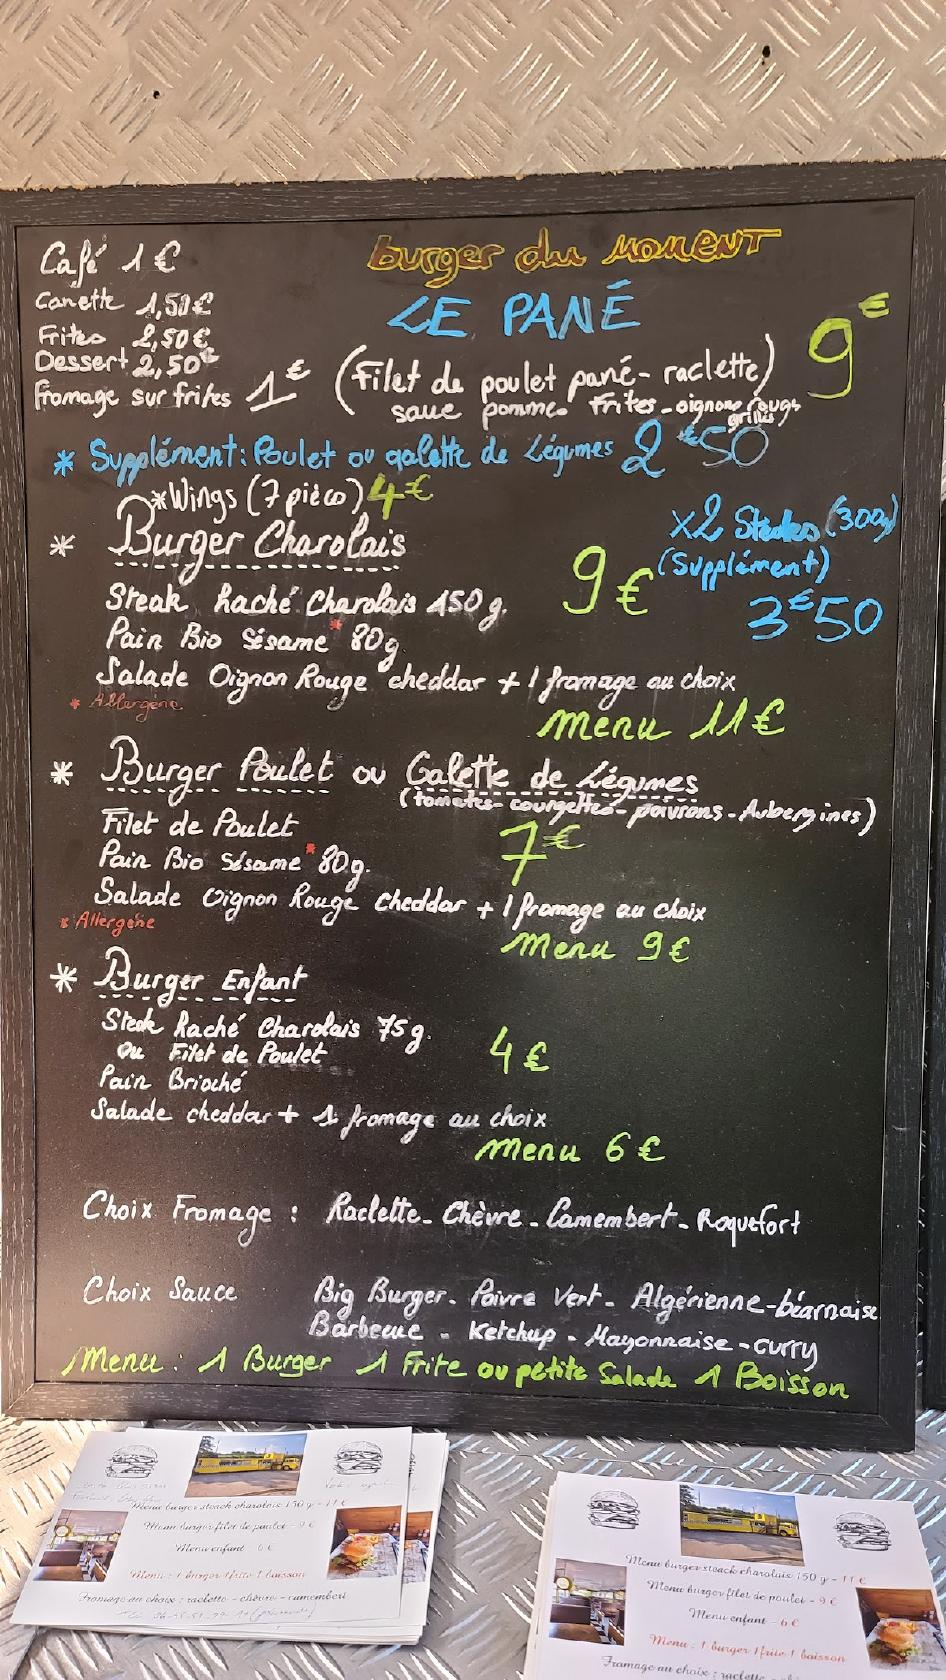 Café 1€
Canette 1,50€
Frites 2,50€
Dessert 2,50€
Fromage sur frites 1€
burger du moment
LE PANÉ
9€
(Filet de poulet pané - raclette)
sauce pommes Frites - oignons rouges
grillés
* Supplément: Poulet ou galette de Légumes 2€50
*Wings (7 pièce) 4€
* Burger Charolais
x2 Steaks (300g)
(Supplément)
3€50
9€
Steak haché Charolais 150g.
Pain Bio Sésame* 80g
Salade Oignon Rouge cheddar + 1 fromage au choix
* Allergène
Menu 11€
* Burger Poulet ou Galette de Légumes
(tomates - courgettes - poivrons - Aubergines)
Filet de Poulet
7€
Pain Bio Sésame* 80g.
Salade Oignon Rouge Cheddar + 1 fromage au choix
* Allergène
Menu 9€
* Burger Enfant
Steak haché Charolais 75g.
ou Filet de Poulet
4€
Pain Brioché
Salade cheddar + 1 fromage au choix
Menu 6€
Choix Fromage : Raclette - Chèvre - Camembert - Roquefort
Choix Sauce Big Burger - Poivre Vert - Algérienne - béarnaise
Barbecue - Ketchup - Mayonnaise - curry
Menu : 1 Burger 1 Frite ou petite Salade 1 Boisson
Menu burger steack charolais 150 g - 11 €
Menu burger filet de poulet - 9 €
Menu enfant - 6 €
Menu : 1 burger 1 frite 1 boisson
Fromage au choix : raclette - chèvre - camembert
Menu burger steack charolais 150 g - 11 €
Menu burger filet de poulet - 9 €
Menu enfant - 6 €
Menu : 1 burger 1 frite 1 boisson
Fromage au choix : raclette